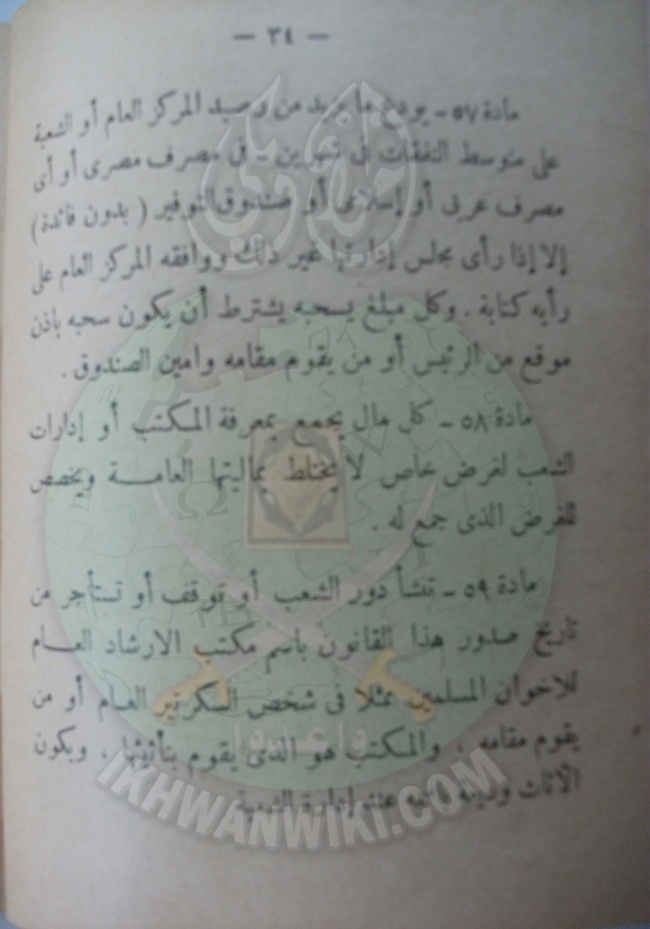 — ٣٤ —
مادة ٥٧ – يودع ما يزيد من رصيد المركز العام أو الشعبة
على متوسط النفقات فى شهرين – فى مصرف مصرى أو أى
مصرف عربى أو إسلامى أو صندوق التوفير ( بدون فائدة )
إلا إذا رأى مجلس إدارتها غير ذلك ووافقه المركز العام على
رأيه كتابة . وكل مبلغ يسحبه يشترط أن يكون سحبه باذن
موقع من الرئيس أو من يقوم مقامه وامين الصندوق .
مادة ٥٨ – كل مال يجمع بمعرفة المكتب أو إدارات
الشعب لغرض خاص لا يختلط بماليتها العامة ويخصص
للغرض الذى جمع له .
مادة ٥٩ – تنشأ دور الشعب أو توقف أو تستأجر من
تاريخ صدور هذا القانون باسم مكتب الارشاد العام
للاخوان المسلمين ممثلا فى شخص السكرتير العام أو من
يقوم مقامه ، والمكتب هو الذى يقوم بتأثيثها ، ويكون
الأثاث وديعة عند إدارة الشعبة
وأعدوا
IKHWANWIKI.COM